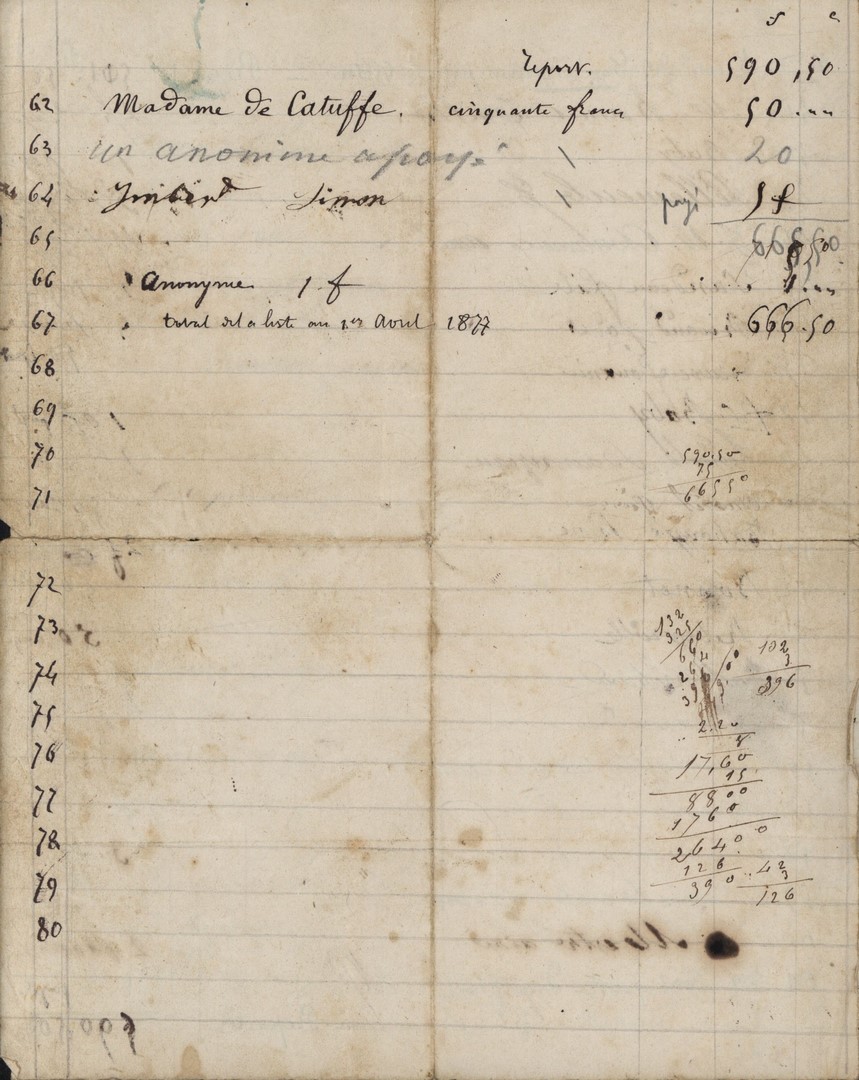 f c
report. 590,50
62 Madame de Catuffe. cinquante francs 50.""
63 un anonime a payé \ 20
64 : Imberd Simon \ payé 5 f
65 665,50
66 Anonyme 1 f 1.""
67 total de la liste au 1er Avril 1877 666.50
68
69
70 590.50
75
71 665 50
72
73 132
325
660
264
396
102
3
396
74
75
2.20
8
76 17,60
15
77 8800
1760
78 26400
126
79 390
.42
3
126
80